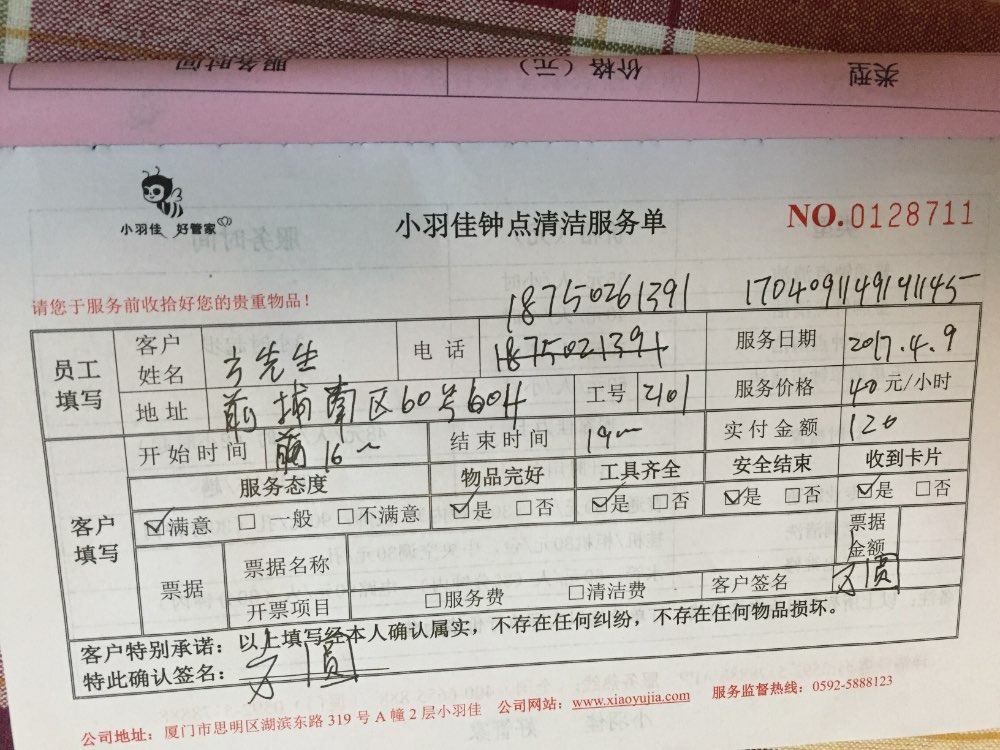 服务时间 价格（元） 类型
小羽佳 好管家
小羽佳钟点清洁服务单
NO.0128711
请您于服务前收拾好您的贵重物品！
18750261391 170409114914145
员工填写 客户姓名 方先生 电话 1875021391 服务日期 2017.4.9
地址 前埔南区60号604 工号 2101 服务价格 40元/小时
客户填写 开始时间 16 结束时间 19 实付金额 120
服务态度 物品完好 工具齐全 安全结束 收到卡片
☑满意 □一般 □不满意 ☑是 □否 ☑是 □否 ☑是 □否 ☑是 □否
票据 票据名称 票据金额
开票项目 □服务费 □清洁费 客户签名 方圆
客户特别承诺：以上填写经本人确认属实，不存在任何纠纷，不存在任何物品损坏。
特此确认签名：方圆
公司地址：厦门市思明区湖滨东路319号A幢2层小羽佳 公司网站：www.xiaoyujia.com 服务监督热线：0592-5888123